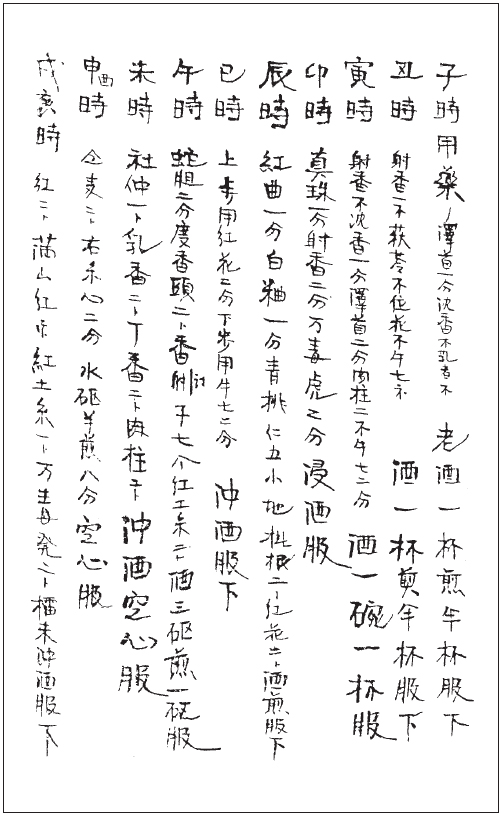 子時用藥 澤首一分沈香不乳香不 老酒一杯煎半杯服下
丑時 射香一不茯苓不位花不牛七不 酒一杯煎半杯服下
寅時 射香不沈香一分澤首二分肉柱二不牛七二分 酒一碗一杯服
卯時 真珠一分射香二分万毒虎之分 浸酒服
辰時 紅曲一分白釉一分青桃仁五小地枇根二卜紅花二卜酒煎服下
巳時 上步用紅花二分下步用牛七二分 沖酒服下
午時 蛇胆二分度香頭二卜香射子七个紅土二卜酒三砿煎一砿服
未時 社仲一卜乳香二卜丁香二卜肉柱二卜沖酒空心服
申酉時 心二分水砿半煎八分空心服
戌亥時 紅二卜滿山紅 紅土 一卜万 二卜檑末沖酒服下